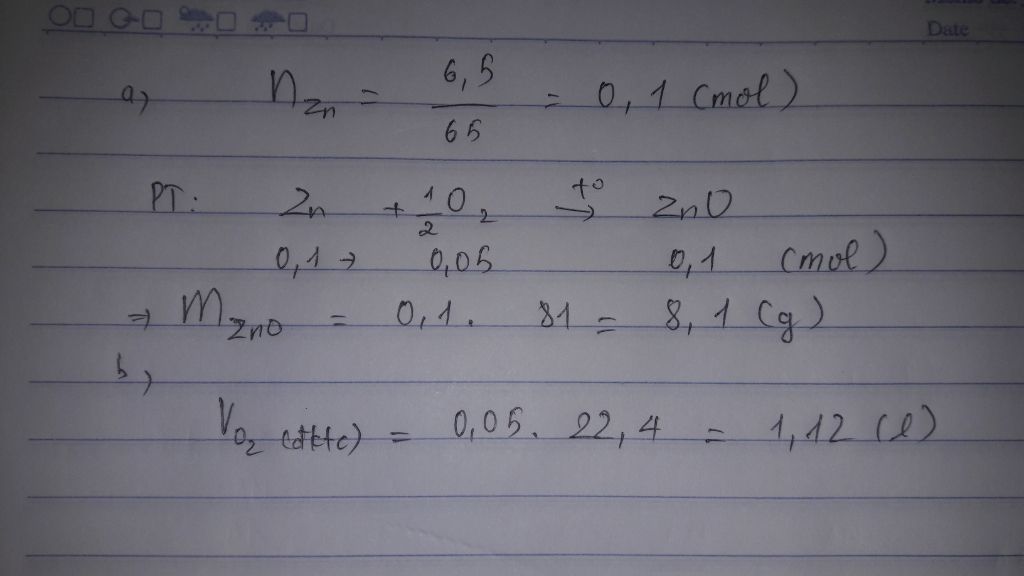 Date
a, n Zn = 6,5 / 65 = 0,1 (mol)
PT: Zn + 1/2 O2 t° → ZnO
0,1 → 0,05 0,1 (mol)
⇒ m ZnO = 0,1 . 81 = 8,1 (g)
b,
V O2 (đktc) = 0,05 . 22,4 = 1,12 (l)